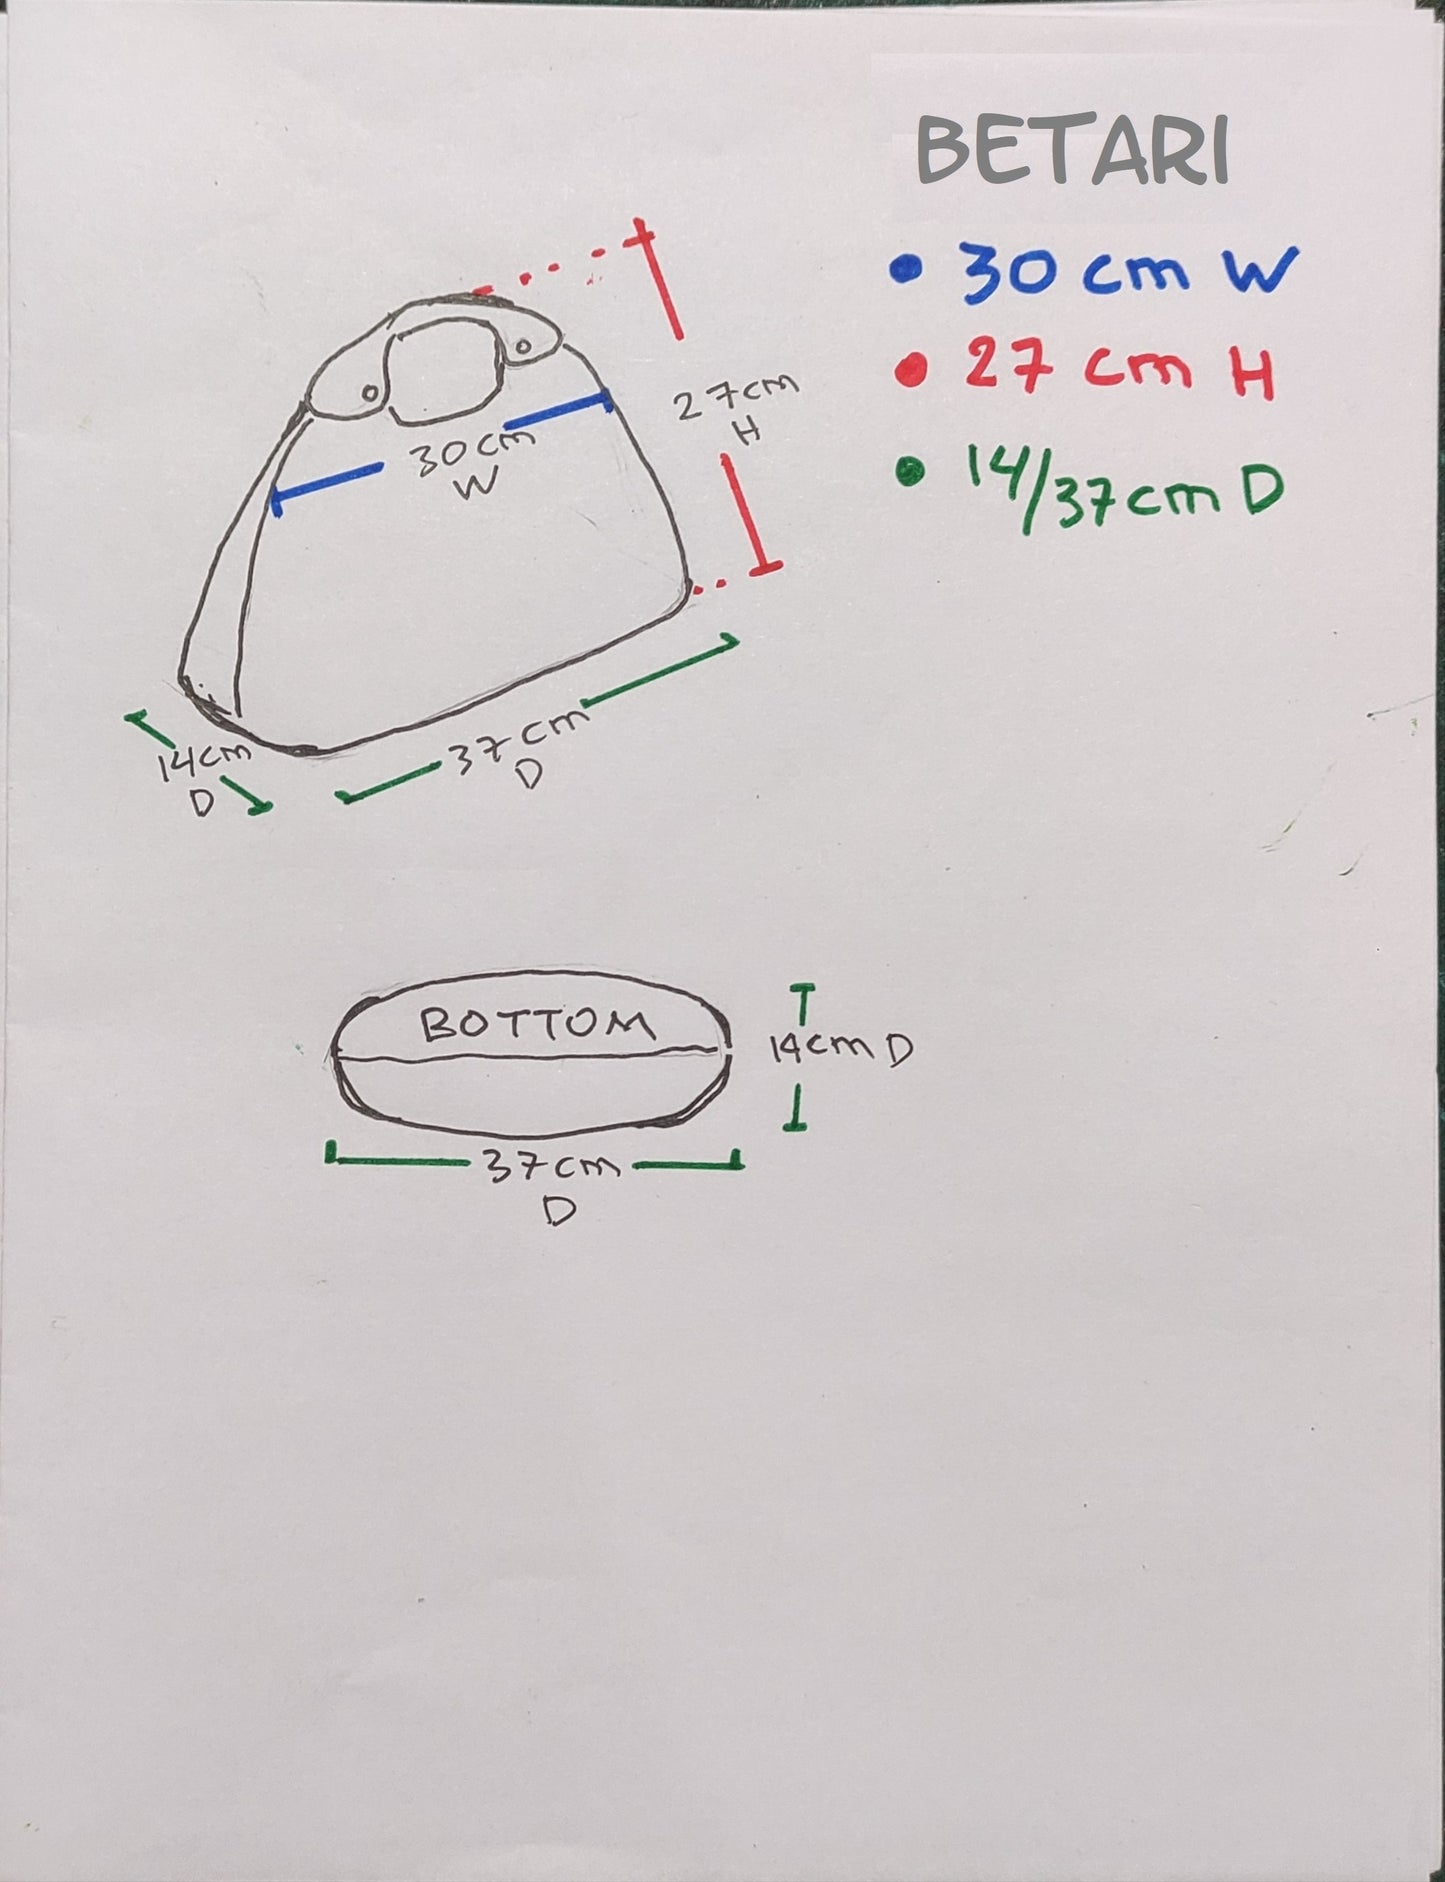 BETARI
• 30 cm W
• 27 cm H
• 14/37cm D
27cm
H
30cm
W
37cm
D
14cm
D
BOTTOM
14cm D
37cm
D